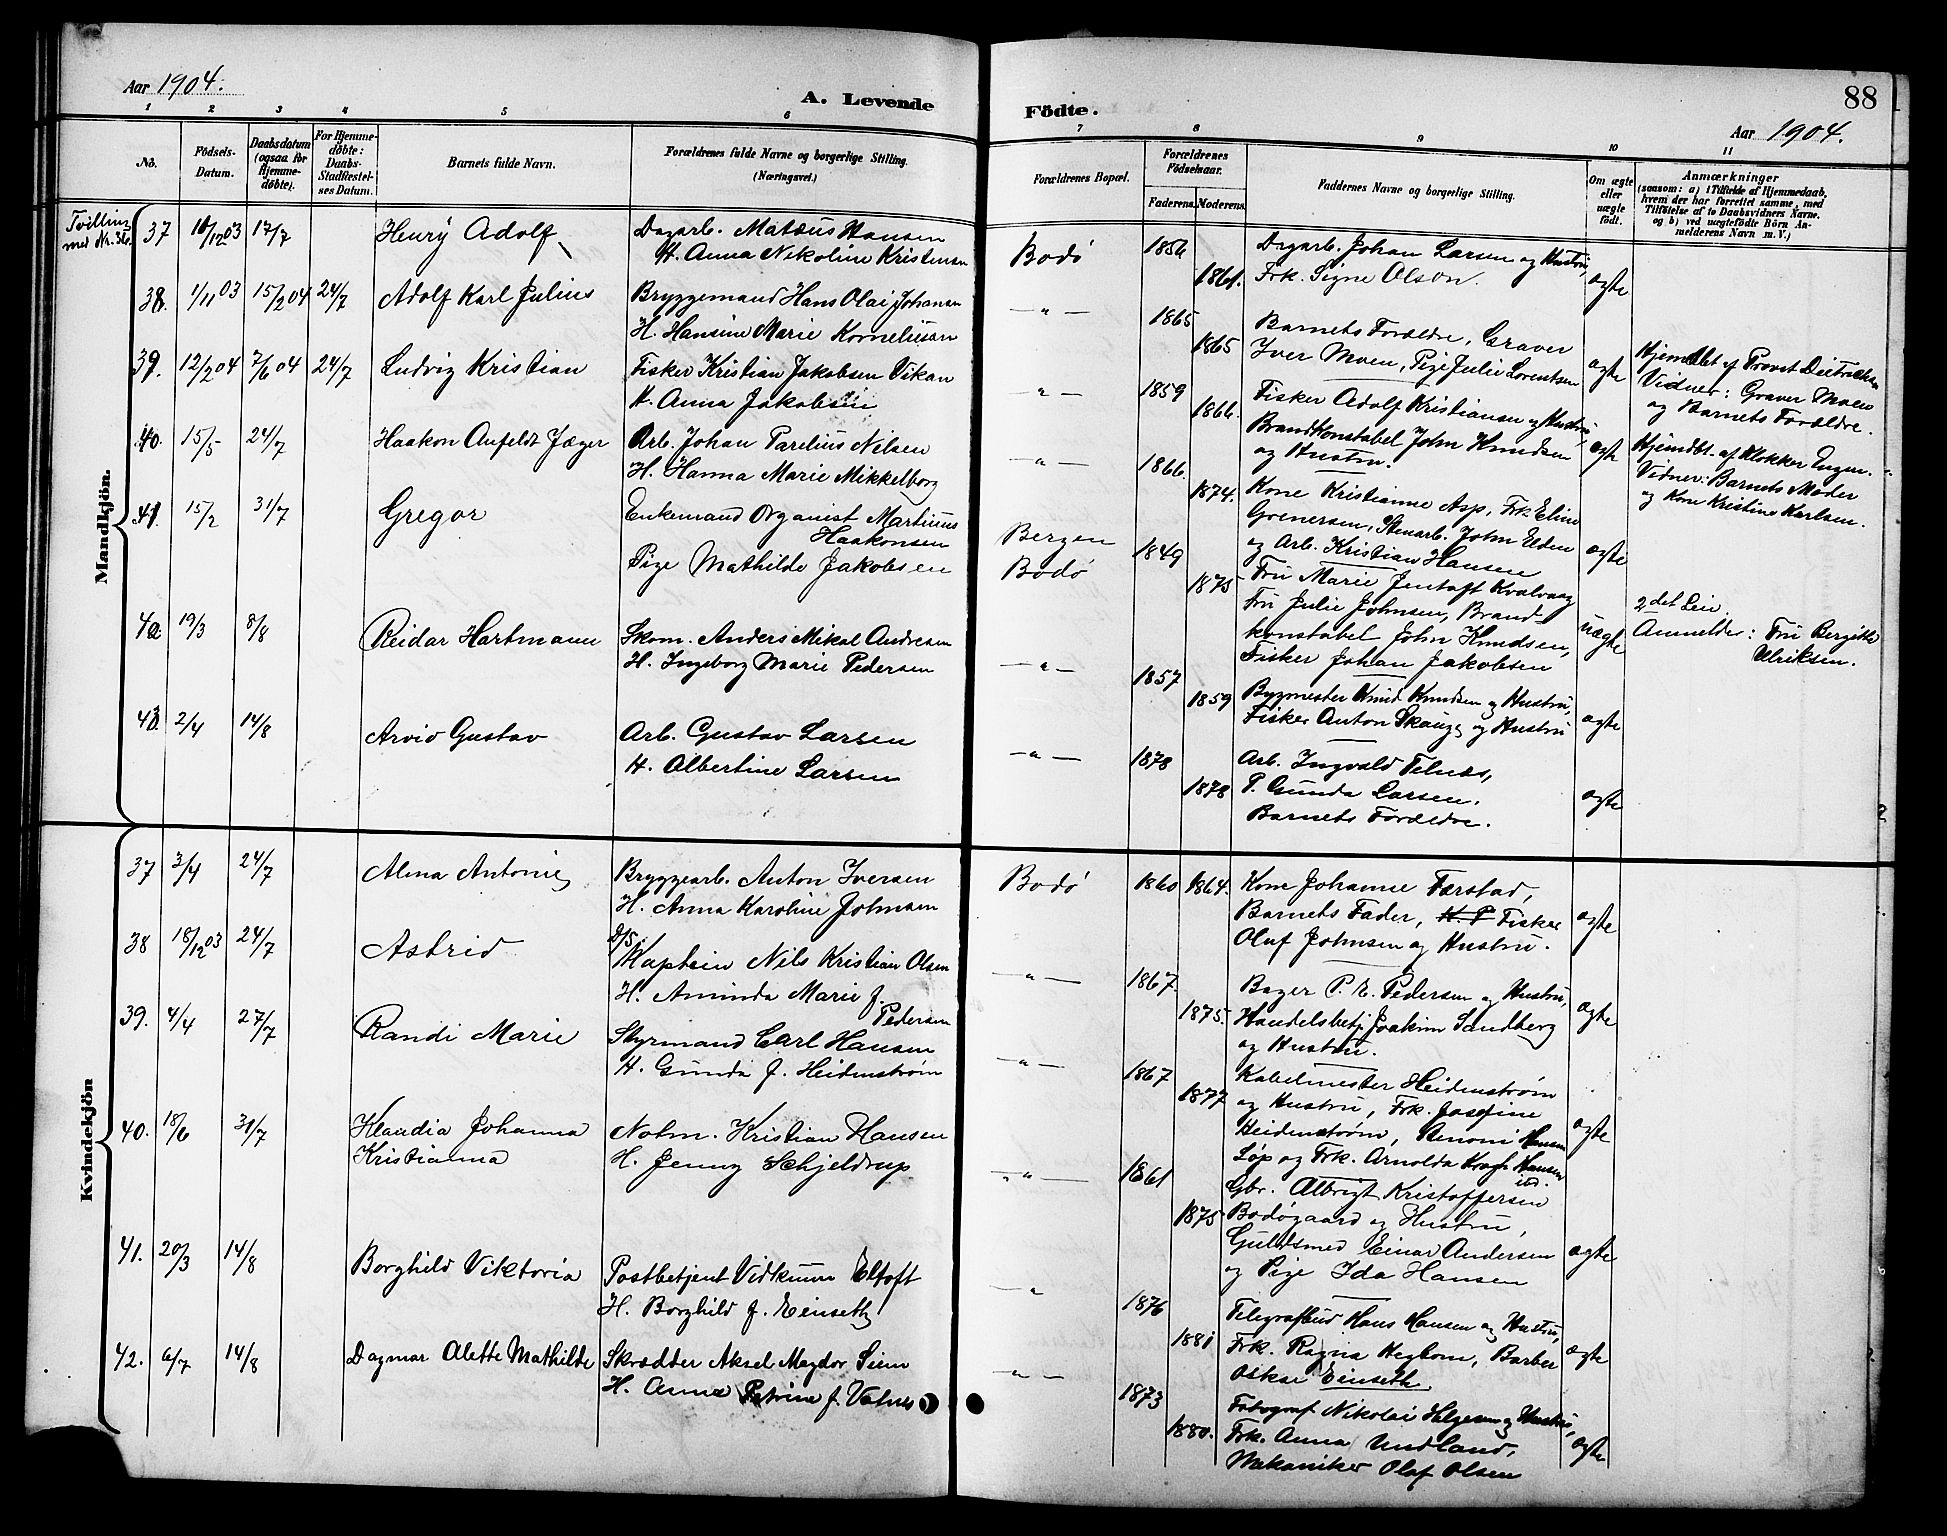 Aar 1904.
A. Levende
1 2 3 4 5 6
No.
Födsels-Datum.
Daabsdatum (ogsaa for Hjemme-döbte).
For Hjemme-döbte: Daabs-Stadfæstelses Datum.
Barnets fulde Navn.
Forældrenes fulde Navne og borgerlige Stilling.
(Næringsvei.)
Mandkjön.
Tvilling med Nr.
37 12/03 17/7 Henry Adolf Dagarb. Matæus Hansen
H. Anna Nikoline Kristensen
38. 1/11 03 15/2 04 24/7 Adolf Karl Julius Bryggemand Hans Olai Johansen
H. Hansine Marie Korneliusen
39. 12/2 04 7/6 04 24/7 Ludvig Kristian Fisker Kristian Jakobsen Vikan
H. Anna Jakobsen
40. 15/5 24/7 Haakon Anfeldt Jæger Arb. Johan Parelius Nilsen
H. Hanna Marie Mikkelborg
41. 15/2 31/7 Gregor Enkemand Organist Martinus
Haakonsen
Pige Mathilde Jakobsen
42 19/3 8/8 Reidar Hartmann Skom. Anders Mikal Andresen
H. Ingeborg Marie Pedersen
43. 2/4 14/8 Arvid Gustav Arb. Gustav Larsen
H. Albertine Larsen
Kvindekjön
37 3/4 24/7 Alma Antonie Bryggearb. Anton Iversen
H. Anna Karoline Johnsen
38 18/12 03 24/7 Astrid D/S. Kaptein Nils Kristian Olsen
H. Aminda Marie f.
Pedersen
39. 4/4 27/7 Randi Marie Styrmand Carl Hansen
H. Gunda f. Heidenstrøm
40. 18/6 31/7 Klaudia Johanna Kristianna Notm. Kristian Hansen
H. Jenny Schjeldrup
41. 20/3 14/8 Borghild Viktoria Postbetjent Vidkunn Eltoft
H. Borghild f. Einseth
42. 6/7 14/8 Dagmar Alette Mathilde Skrædder Aksel Magdor Siem
H. Anna Petrine f. Vatnes
Födte.
88
Aar 1904.
7 8 9 10 11
Forældrenes Bopæl.
Forældrenes Födselsaar.
Faderens. Moderens.
Faddernes Navne og borgerlige Stilling.
Om ægte eller uægte födt.
Anmærkninger
(saasom: a) i Tilfælde af Hjemmedaab, hvem der har forrettet samme, med Tilföielse af to Daabsvidners Navne. og b) ved uægtefödte Börn Anmelderens Navn m. V.)
Bodø 1856 1861. Dagarb. Johan Larsen og Hustru,
Frk. Signe Olson. ægte
— " — 1865 1865 Barnets Forældre, Graver
Iver Moen, Pige Julie Lorentsen ægte
Hjemdbt af Provst Deitrichson
Vidner: Graver Moen
og Barnets Forældre.
— " — 1859 1866. Fisker Adolf Kristiansen og Hustru,
Brandkonstabel John Knudsen
og Hustru. ægte
Hjemdbt. af Klokker Engen.
Vidner: Barnets Moder
og Kone Kristine Karlsen.
— " — 1866. 1874. Kone Kristianne Asp, Frk Eline
Grenersen, Stenarb. John Elden
og Arb. Kristian Hansen ægte
Bergen
Bodø 1849 1875 Fru Marie Jentoft Kvalvaag
Fru Julie Johnsen, Brand-
konstabel John Knudsen,
Fisker Johan Jakobsen uægte
2det Leir.
Anmelder: Fru Bergitte
Ulriksen.
— " — 1857 1859 Bygmester Knud Knudsen og Hustru,
Fisker Anton Skauge og Hustru ægte
— " — 1878 1878 Arb. Ingvald Telnæs,
P. Gunda Larsen.
Barnets Forældre. ægte
Bodø 1860 1864. Kone Johanne Færstad,
Barnets Fader, H. P Fisker
Oluf Johnsen og Hustru. ægte
— " — 1867. 1875. Bager P. E. Pedersen og Hustru,
Handelsbetj Joakim Sandberg
og Hustru. ægte
— " — 1867 1877 Kabelmester Heidenstrøm
og Hustru, Frk. Josefine
Heidenstrøm, Benoni Hansen
Løp og Frk. Arnolda Krogh Hansen
ibd. ægte
— " — 1861 1875 Gbr. Albrigt Kristoffersen
Bodøgaard og Hustru,
Guldsmed Einar Andersen
og Pige Ida Hansen ægte
" 1876 1881 Telegrafbud Hans Hansen og Hustru,
Frk. Ragna Hegbom, Barber
Oskar Einseth. ægte
— " — 1873 1880. Fotograf Nikolai Helgesen og Hustru,
Frk. Anna Undland,
Mekaniker Olaf Olsen ægte